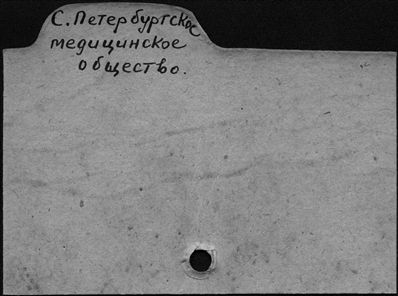 С. Петербургское
медицинское
общество.